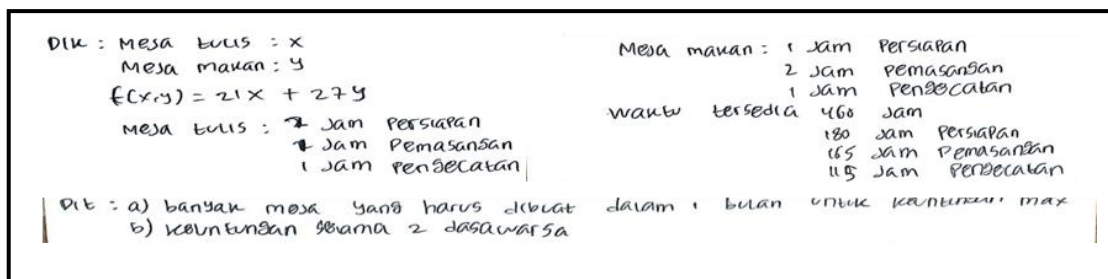 Dik : Meja tulis : x
Meja makan : y
f(x,y) = 21x + 27y
Meja tulis : Jam Persiapan
Jam Pemasangan
1 Jam Pengecatan
Meja makan : 1 Jam Persiapan
2 Jam Pemasangan
1 Jam Pengecatan
Waktu tersedia 460 Jam
180 Jam Persiapan
165 Jam Pemasangan
115 Jam Pengecatan
Dit : a) banyak meja yang harus dibuat dalam 1 bulan untuk max
b) keuntungan selama 2 dasawarsa